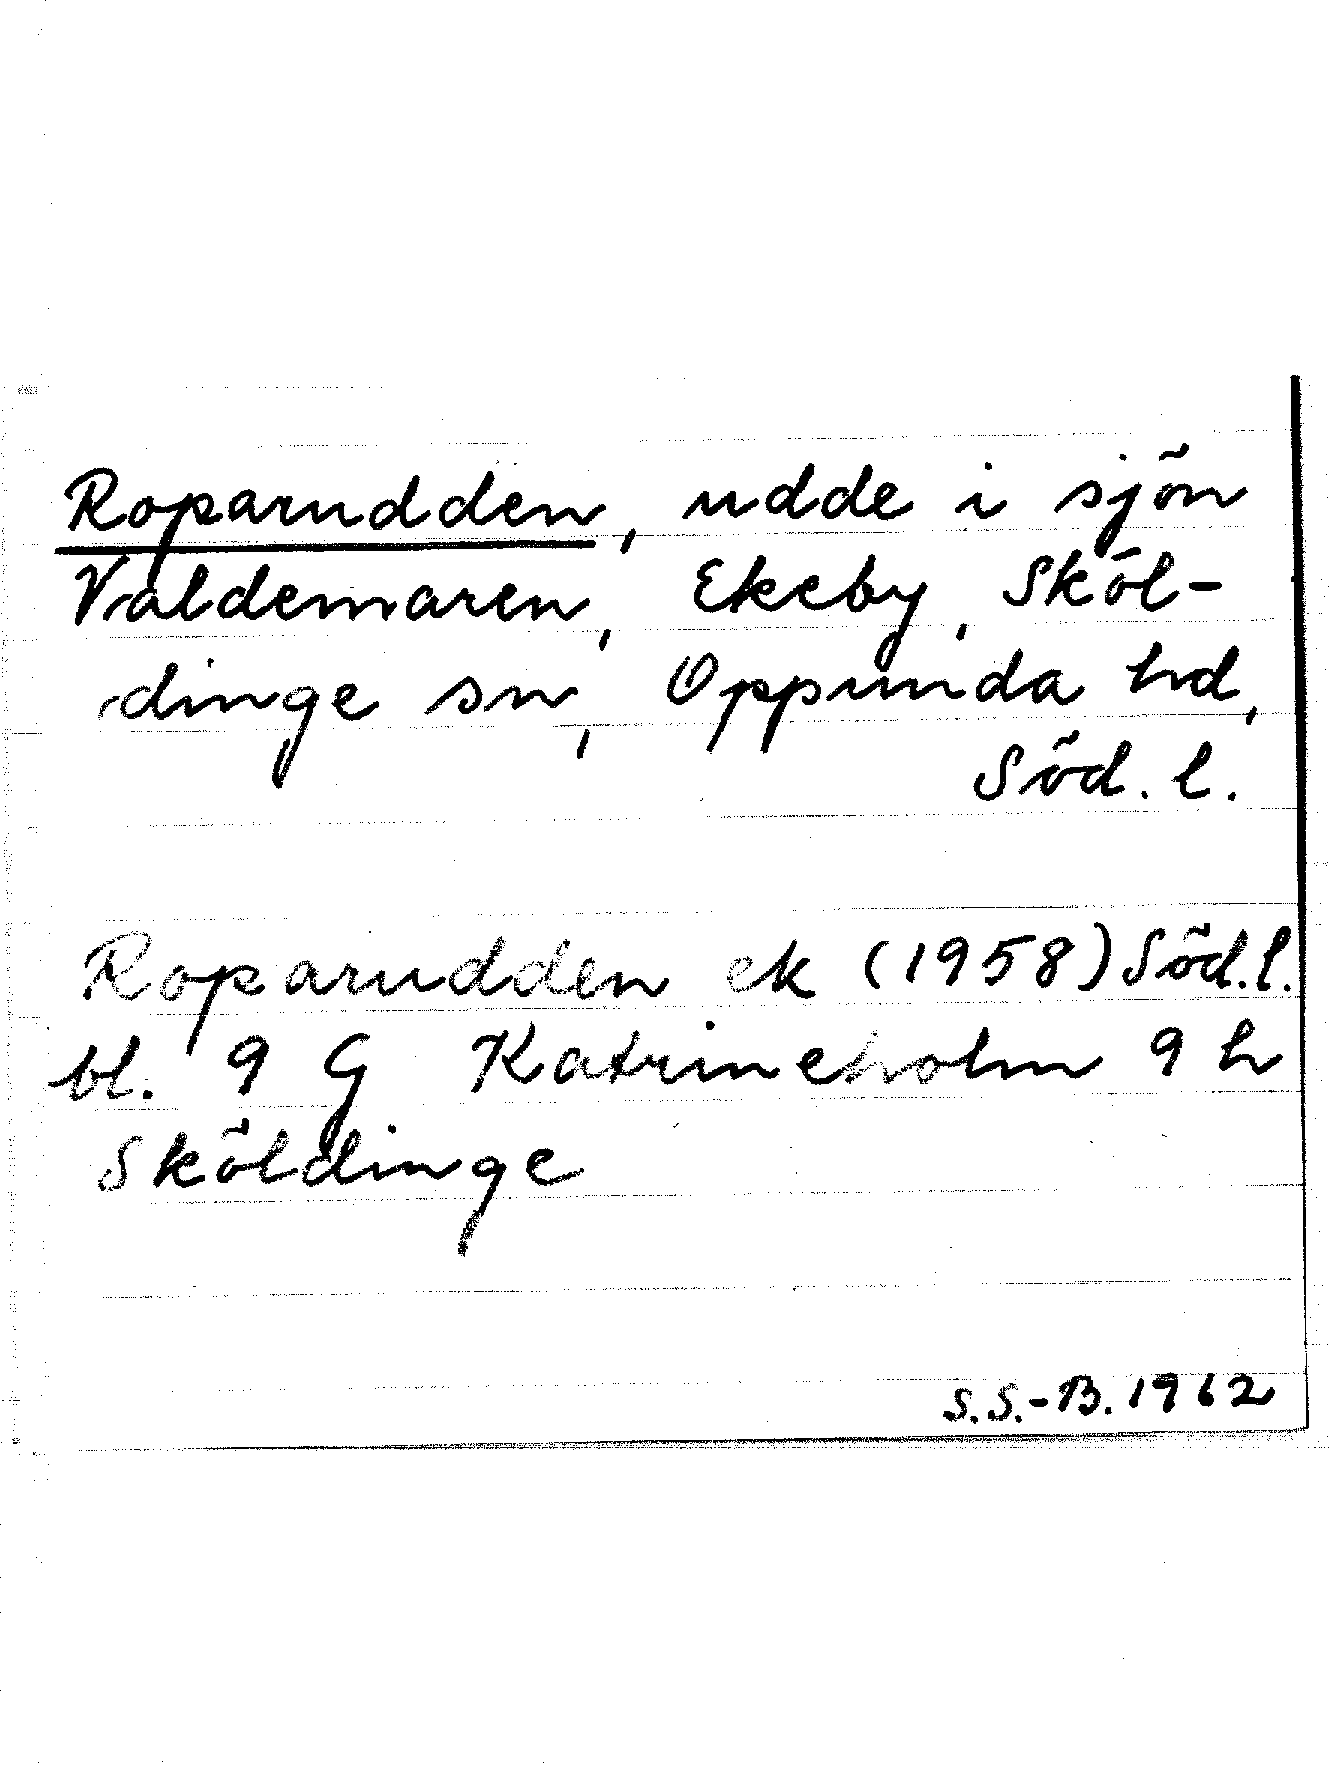 Roparudden, udde i sjön
Valdemaren, Ekeby, Sköl-
dinge sn, Oppunda hd,
Söd. l.
Roparudden ek (1958) Söd. l.
bl. 9 G Katrineholm 9 h
Sköldinge
S. S.-B. 1962